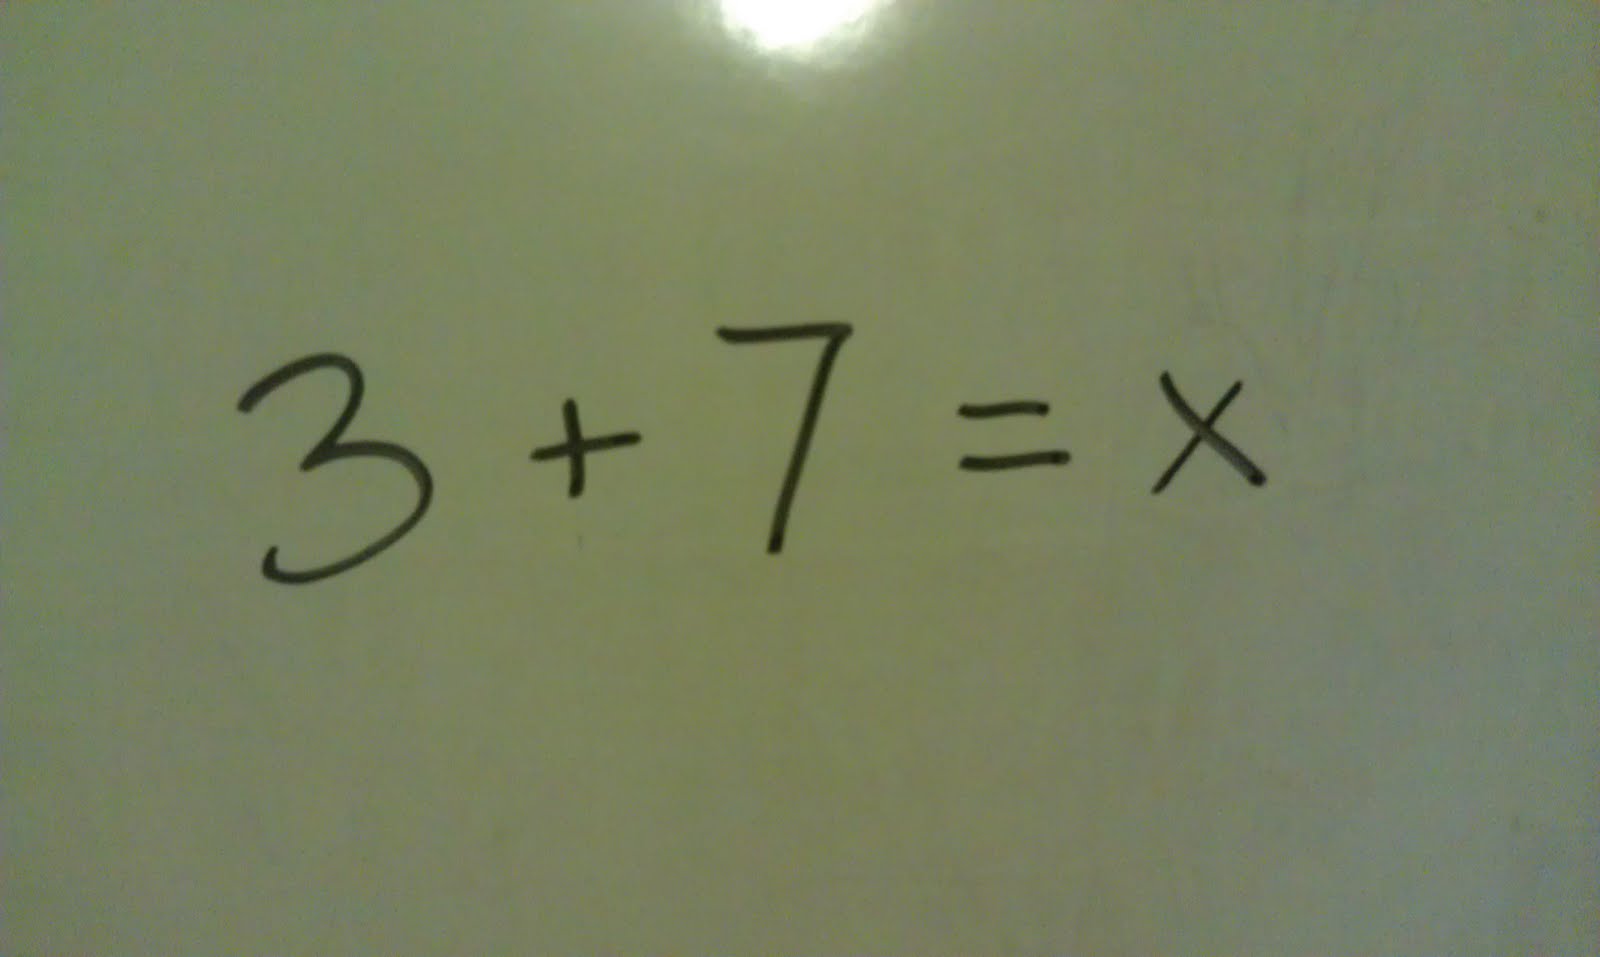 3 + 7 = x